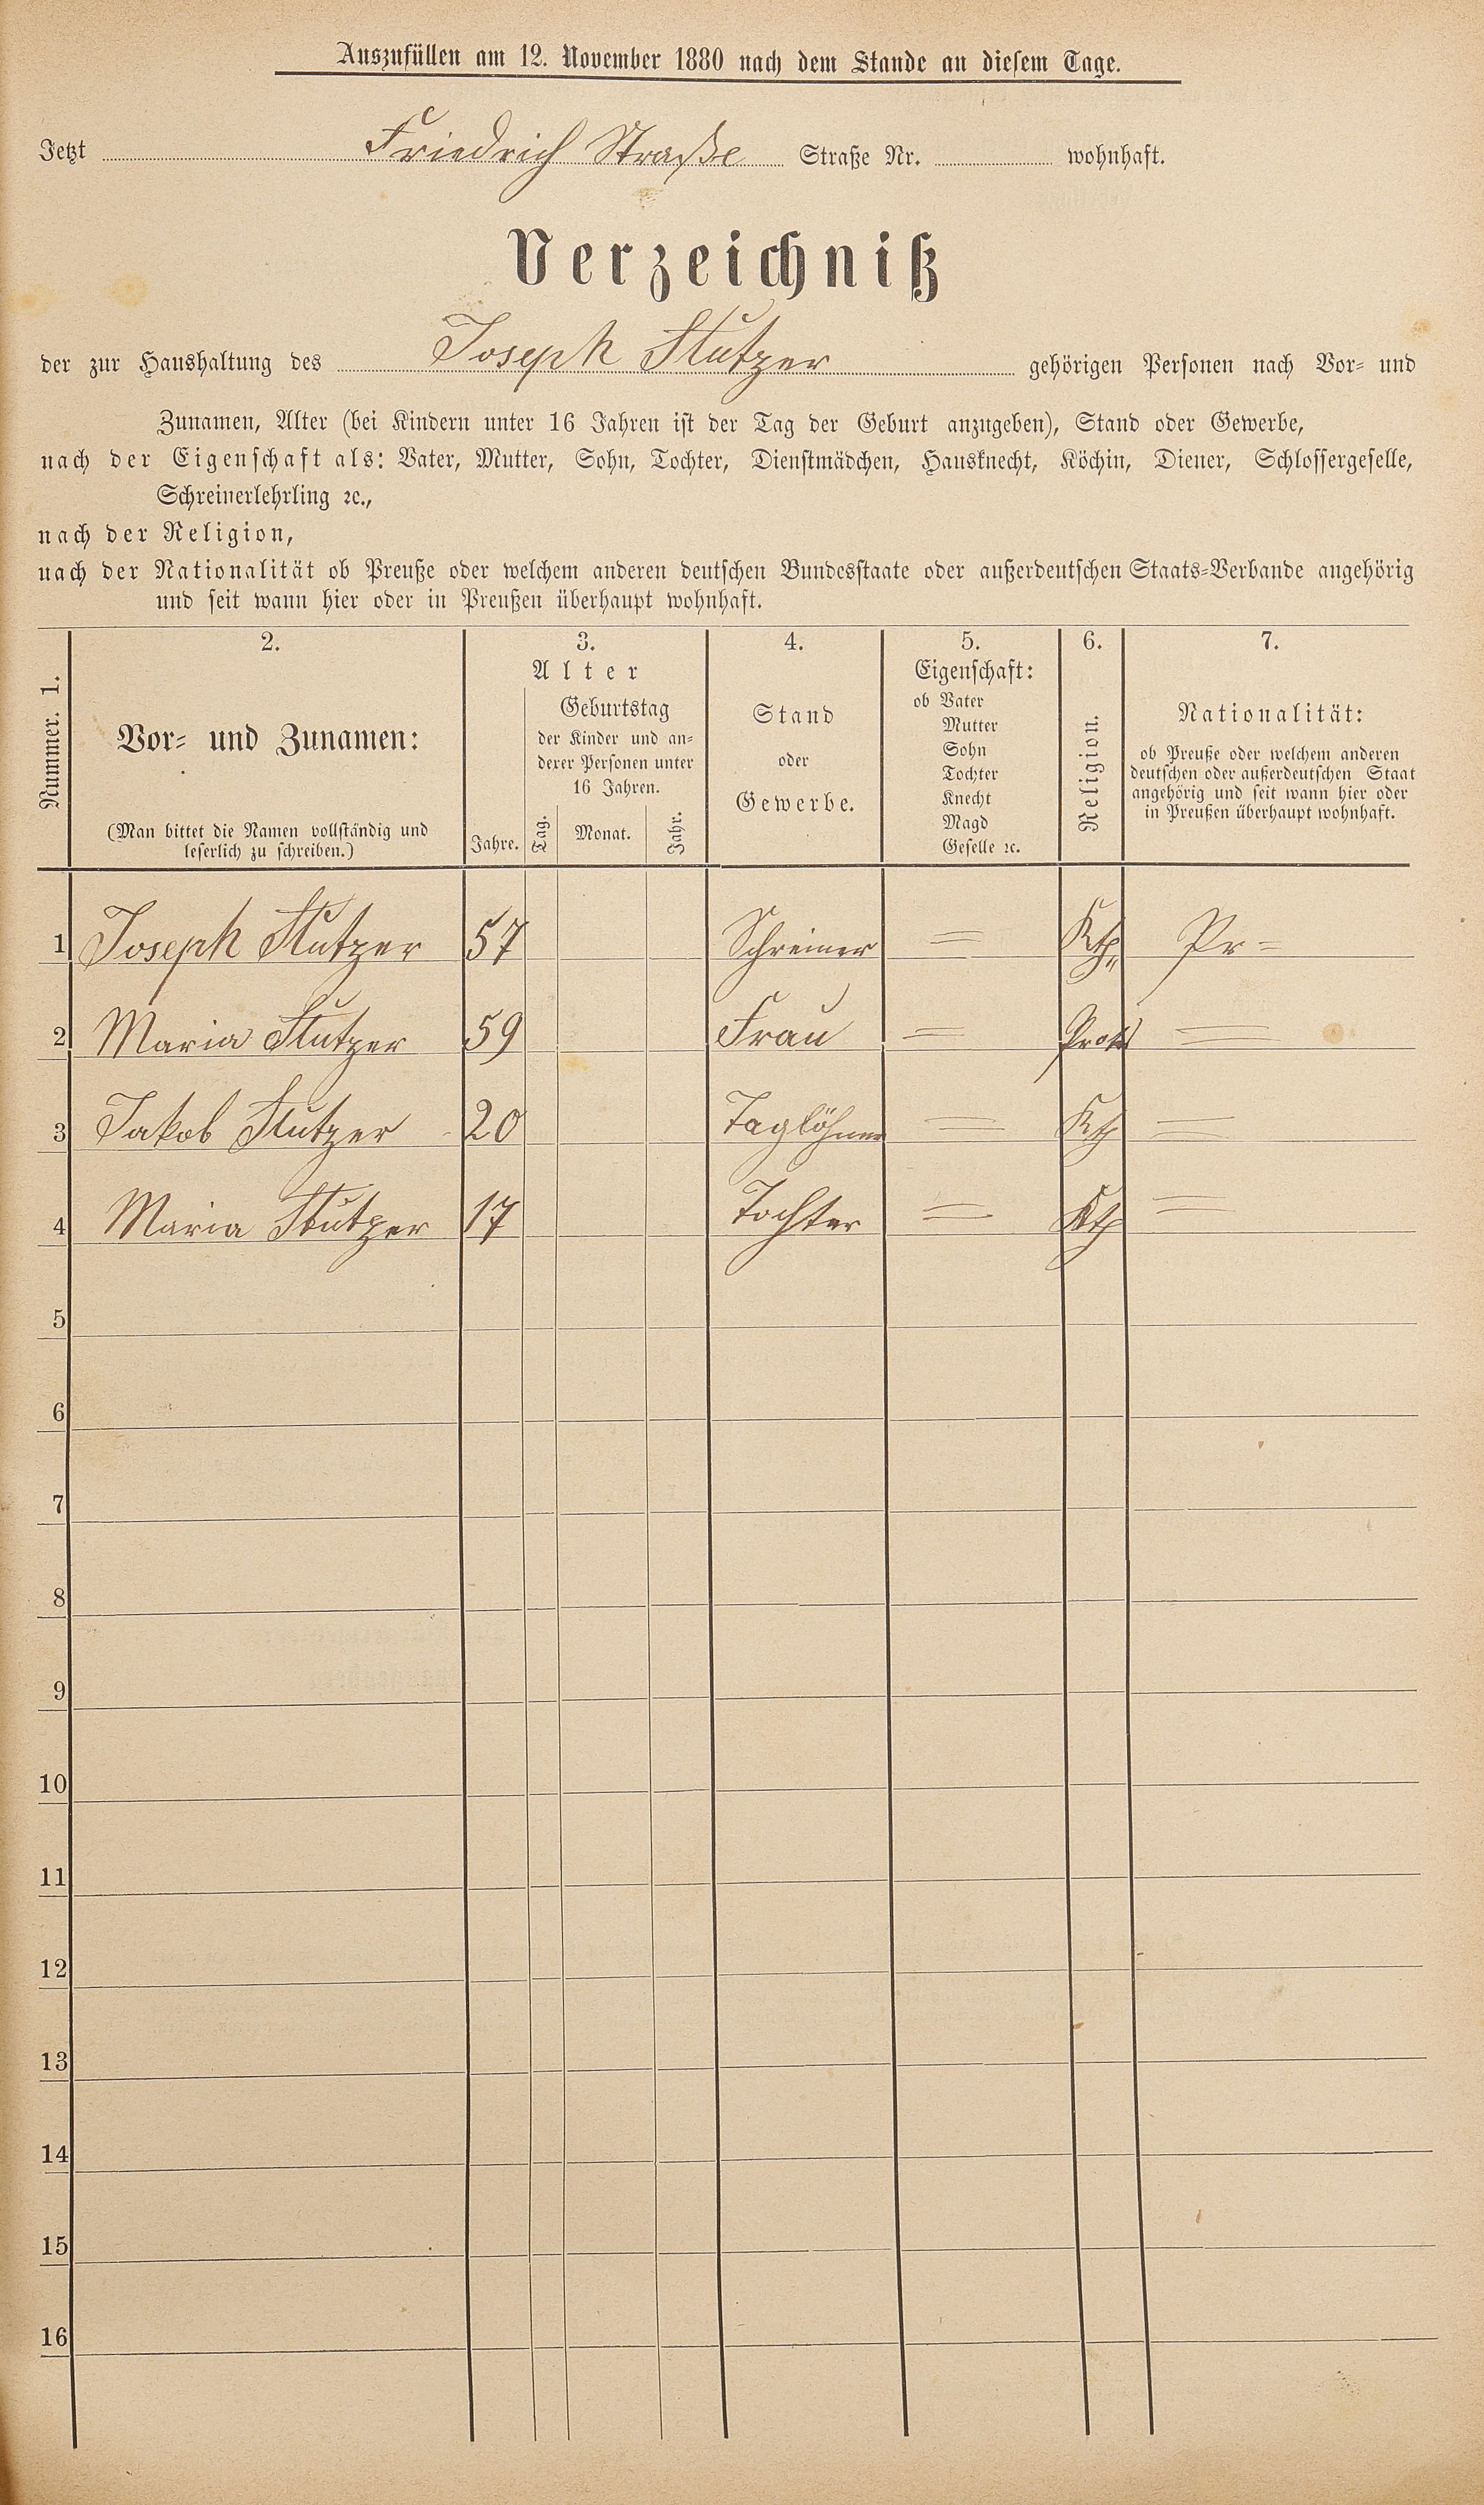 Auszufüllen am 12. November 1880 nach dem Stande an diesem Tage.
Jetzt Friedrich Straße Straße Nr. wohnhaft.
Verzeichniß
der zur Haushaltung des Joseph Stutzer gehörigen Personen nach Vor- und
Zunamen, Alter (bei Kindern unter 16 Jahren ist der Tag der Geburt anzugeben), Stand oder Gewerbe,
nach der Eigenschaft als: Vater, Mutter, Sohn, Tochter, Dienstmädchen, Hausknecht, Köchin, Diener, Schlossergeselle,
Schreinerlehrling ꝛc.,
nach der Religion,
nach der Nationalität ob Preuße oder welchem anderen deutschen Bundesstaate oder außerdeutschen Staats-Verbande angehörig
und seit wann hier oder in Preußen überhaupt wohnhaft.
Nummer. 1.
2.
Vor- und Zunamen:
(Man bittet die Namen vollständig und
leserlich zu schreiben.)
3.
Alter
Jahre.
Geburtstag
der Kinder und an-
derer Personen unter
16 Jahren.
Tag. Monat. Jahr.
4.
Stand
oder
Gewerbe.
5.
Eigenschaft:
ob Vater
Mutter
Sohn
Tochter
Knecht
Magd
Geselle ꝛc.
6.
Religion.
7.
Nationalität:
ob Preuße oder welchem anderen
deutschen oder außerdeutschen Staat
angehörig und seit wann hier oder
in Preußen überhaupt wohnhaft.
1 Joseph Stutzer 57 Schreiner = Kth. Pr =
2 Maria Stutzer 59 Frau = Prot =
3 Jakob Stutzer 20 Taglöhner = Kth =
4 Maria Stutzer 17 Tochter = Kth =
5
6
7
8
9
10
11
12
13
14
15
16